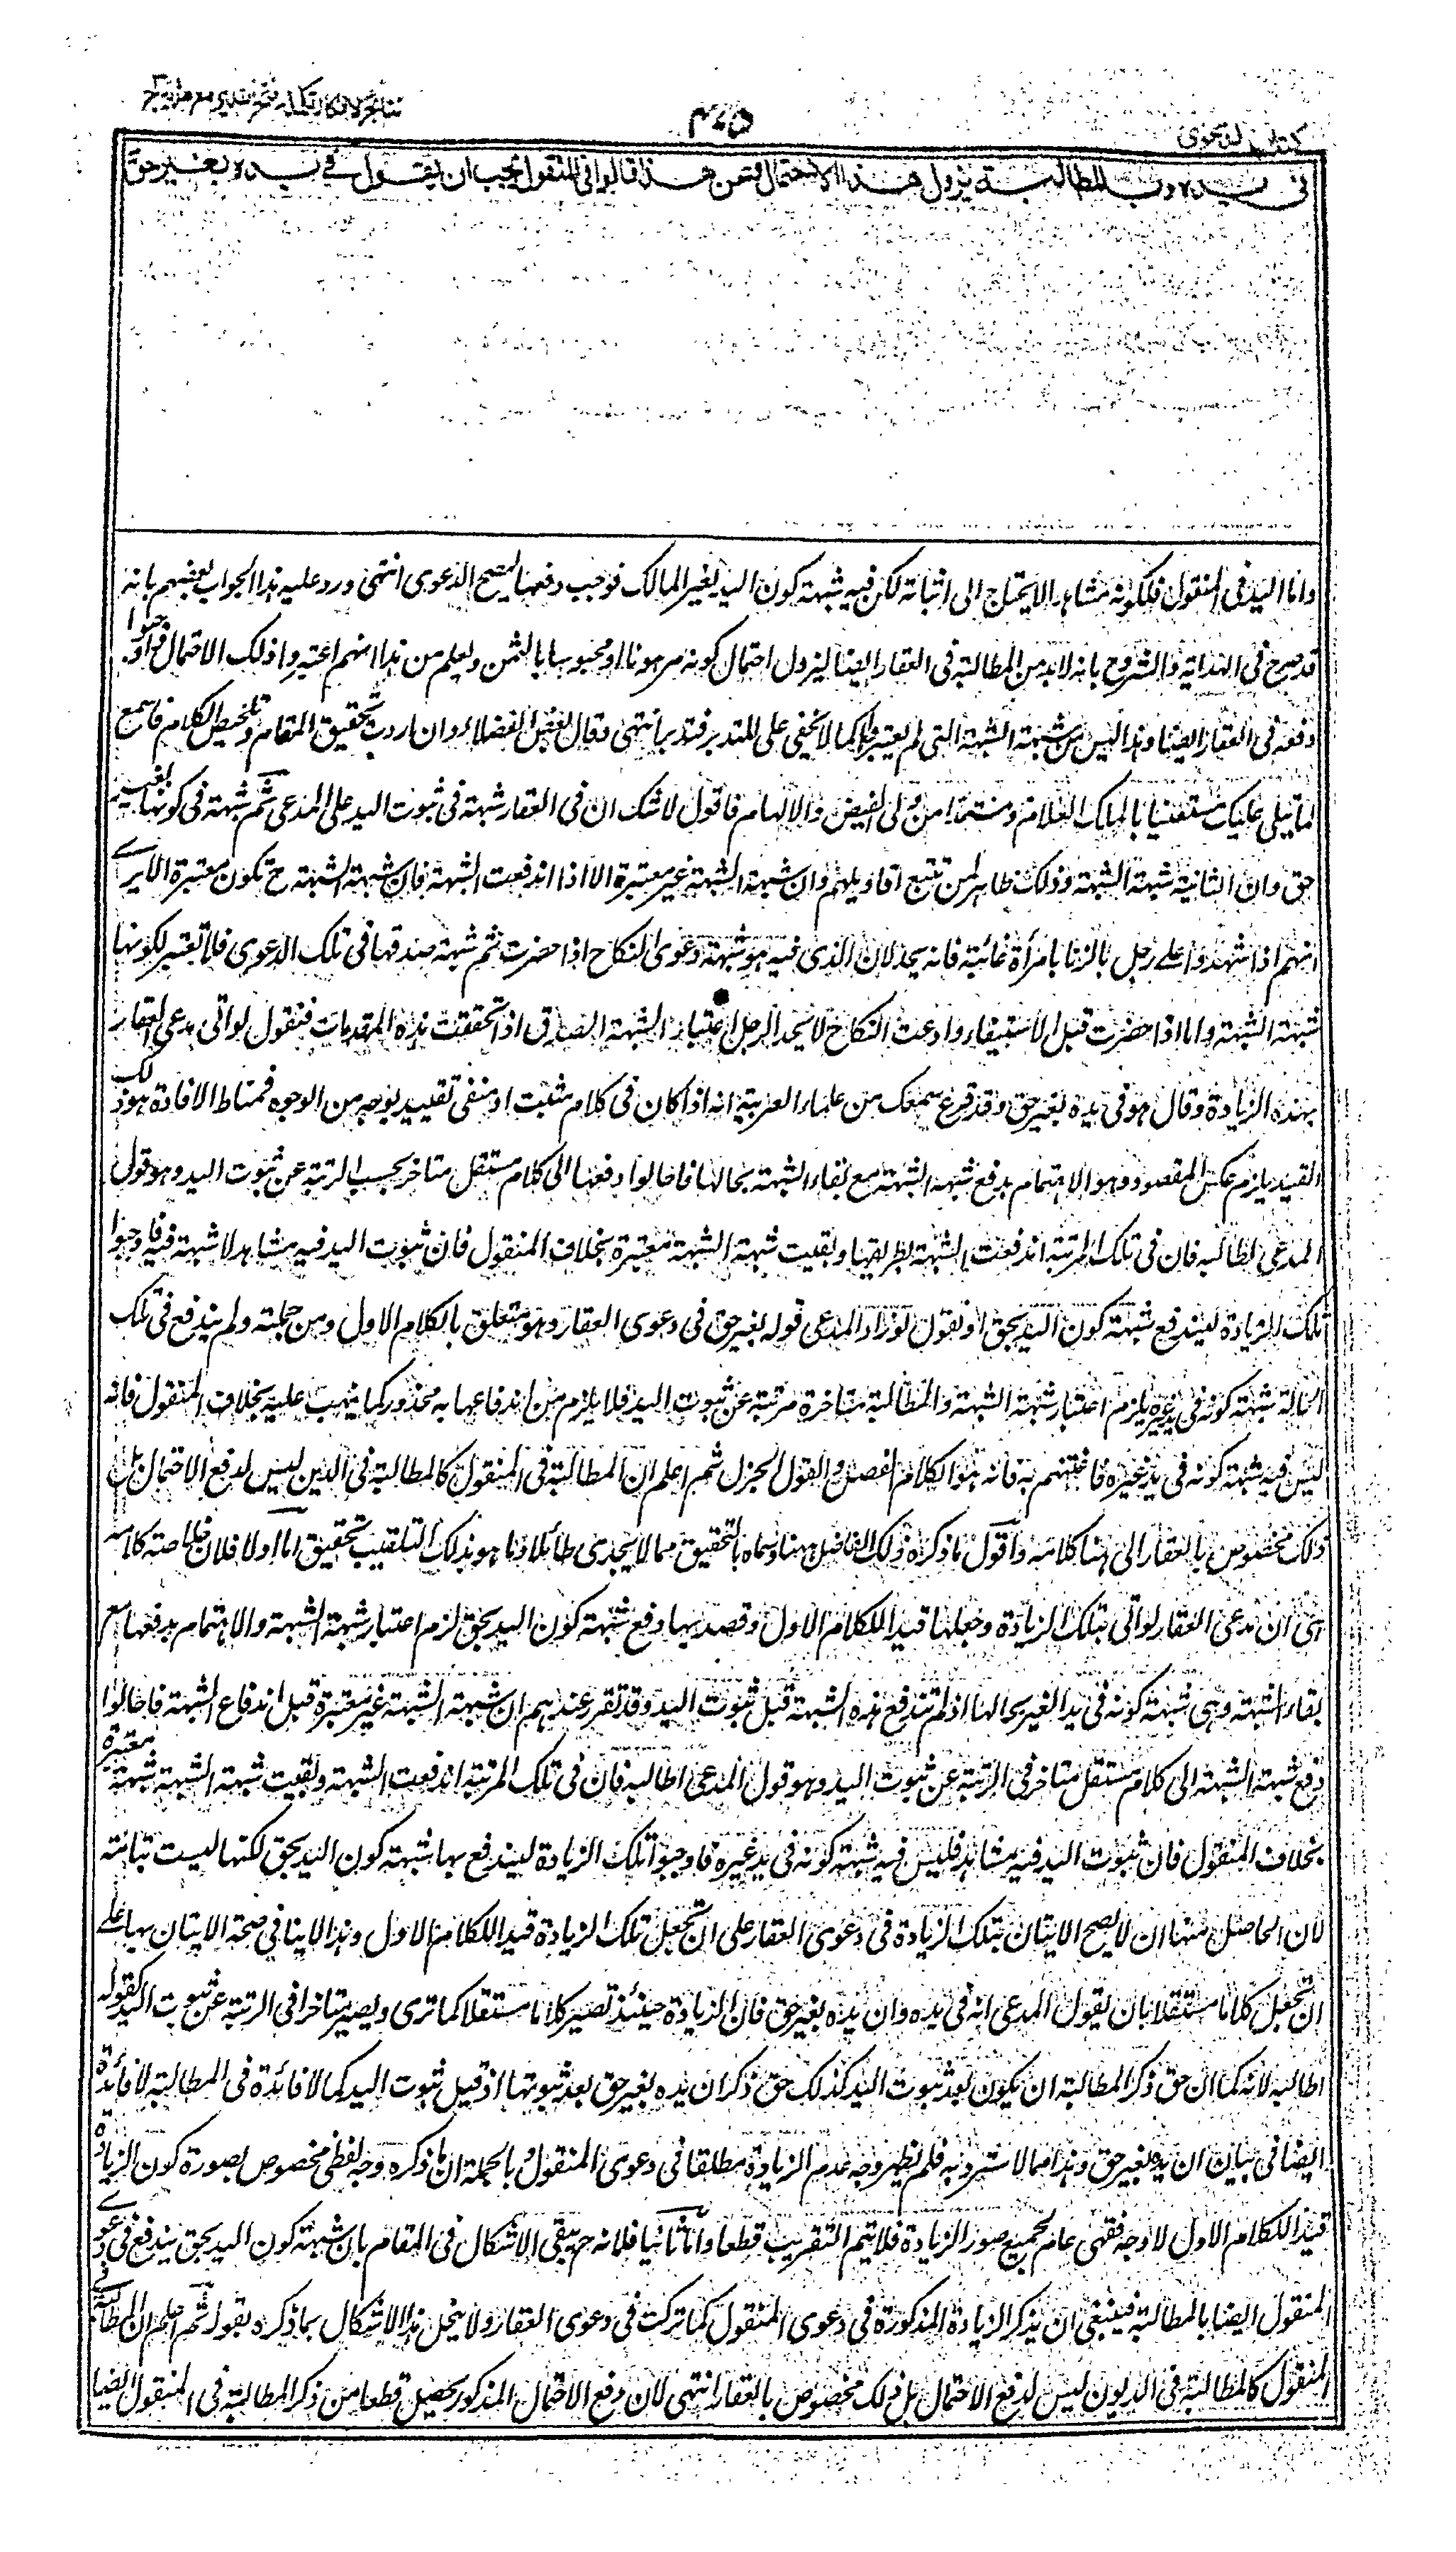 كتاب الدعوى
٤٧٥
نتائج الافكار تكملة فتح القدير مع هداية ج ٣
فى يده وبالمطالبة يزول هذا الاحتمال وعن هذا قالوا فى المنقول يجب ان يقول فى يده بغير حق
واما اليد فى المنقول فلكونه مشاهدا لا يحتاج الى اثباته لكن فيه شبهة كون اليد لغير المالك فوجب دفعها ليصح الدعوى انتهى ورد عليه هذا الجواب بعضهم بانه
قد صرح فى الهداية والشروح بانه لا بد من المطالبة فى العقار ايضا ليزول احتمال كونه مرهونا او محبوسا بالثمن ويعلم من هذا انهم اعتبروا ذلك الاحتمال فاوجبوا
دفعه فى العقار ايضا وهذا ليس من شبهة الشبهة التى لم يعتبروها كما لا يخفى على المتدبر فتدبر انتهى وقال بعض الفضلاء وان اردت تحقيق المقام وتلخيص الكلام فاسمع
لما يتلى عليك مستعينا بالملك العلام ومستمدا من ولى الفيض والالهام فاقول لا شك ان فى العقار شبهة فى ثبوت اليد على المدعى ثم شبهة فى كونها بغير
حق وان الثانية شبهة الشبهة وذلك ظاهر لمن تتبع اقاويلهم وان شبهة الشبهة غير معتبرة الا اذا اندفعت الشبهة فان شبهة الشبهة ح تكون معتبرة الا يرى
انهم اذا شهدوا على رجل بالزنا بامرأة غائبة فانه يحد لان الذى فيه هو شبهة دعوى النكاح اذا حضرت ثم شبهة صدقها فى تلك الدعوى فلا تعتبر لكونها
شبهة الشبهة واما اذا حضرت قبل الاستيفاء وادعت النكاح لا يحد الرجل لاعتبار الشبهة الصدق اذا تحققت هذه المقدمات فنقول لو اتى مدعى العقار
بهذه الزيادة وقال هو فى يده بغير حق وقد قرع سمعك من علماء العربية انه اذا كان فى كلام مثبت او منفى تقييد بوجه من الوجوه فمناط الافادة هو ذلك
القيد يلزم عكس المقصود وهو الاهتمام بدفع شبهة الشبهة مع بقاء الشبهة بحالها فاحالوا دفعها الى كلام مستقل متاخر بحسب الرتبة عن ثبوت اليد وهو قول
المدعى اطالبه فان فى تلك المرتبة اندفعت الشبهة بطريقها وبقيت شبهة الشبهة معتبرة بخلاف المنقول فان ثبوت اليد فيه مشاهد لا شبهة فيه فاوجبوا
تلك الزيادة ليندفع شبهة كون اليد بحق او نقول لو زاد المدعى قوله بغير حق فى دعوى العقار وهو متعلق بالكلام الاول ومن جملته ولم يندفع فى تلك
الحالة شبهة كونه فى يد غيره يلزم اعتبار شبهة الشبهة والمطالبة متاخرة مرتبة عن ثبوت اليد فلا يلزم من اندفاعها به محذور كما نبهت عليه بخلاف المنقول فانه
ليس فيه شبهة كونه فى يد غيره فاغتنم به فانه هو الكلام الفصل والقول الجزل ثم اعلم ان المطالبة فى المنقول كالمطالبة فى الدين ليس لدفع الاحتمال بل
ذلك مخصوص بالعقار الى هنا كلامه واقول ما ذكره ذلك الفاضل ههنا وسماه بالتحقيق مما لا يجدى طائلا وما هو بذلك التلقيب بحقيق اما اولا فلان خلاصة كلامه
هى ان مدعى العقار لو اتى بتلك الزيادة وجعلها قيدا للكلام الاول وقصد بها دفع شبهة كون اليد بحق لزم اعتبار شبهة الشبهة والاهتمام بدفعها مع
بقاء الشبهة وهى شبهة كونه فى يد الغير بحالها اذ لم تندفع هذه الشبهة قبل ثبوت اليد وقد تقرر عندهم ان شبهة الشبهة غير معتبرة قبل اندفاع الشبهة فاحالوا
دفع شبهة الشبهة الى كلام مستقل متاخر فى الرتبة عن ثبوت اليد وهو قول المدعى اطالبه فان فى تلك المرتبة اندفعت الشبهة وبقيت شبهة الشبهة شبهة معتبرة
بخلاف المنقول فان ثبوت اليد فيه مشاهد فليس فيه شبهة كونه فى يد غيره فاوجبوا تلك الزيادة ليندفع بها شبهة كون اليد بحق لكنها ليست بتامة
لان الحاصل منها ان لا يصح الاتيان بتلك الزيادة فى دعوى العقار على ان تجعل تلك الزيادة قيدا للكلام الاول وهذا لا ينافى صحة الاتيان بها على
ان تجعل كلاما مستقلا بان يقول المدعى انه فى يده وان يده بغير حق فان الزيادة حينئذ تصير كلاما مستقلا كما ترى ويصير متاخرا فى الرتبة عن ثبوت اليد كقوله
اطالبه لانه كما ان حق ذكر المطالبة ان يكون بعد ثبوت اليد كذلك حق ذكر ان يده بغير حق بعد ثبوتها اذ قبل ثبوت اليد كما لا فائدة فى المطالبة لا فائدة
ايضا فى بيان ان يده بغير حق وهذا مما لا سترة به فلم يظهر وجه عدم الزيادة مطلقا فى دعوى المنقول وبالجملة ان ما ذكره وجه لفظى مخصوص بصورة كون الزيادة
قيدا للكلام الاول لا وجه فقهى عام لجميع صور الزيادة فلا يتم التقريب قطعا واما ثانيا فلانه ح يبقى الاشكال فى المقام بان شبهة كون اليد بحق يندفع فى دعوى
المنقول ايضا بالمطالبة فينبغى ان يذكر الزيادة المذكورة فى دعوى المنقول كما تركت فى دعوى العقار ولا ينحل هذا الاشكال بما ذكره بقوله ثم اعلم ان المطالبة فى
المنقول كالمطالبة فى الديون ليس لدفع الاحتمال بل ذلك مخصوص بالعقار انتهى لان دفع الاحتمال المذكور يحصل قطعا من ذكر المطالبة فى المنقول ايضا